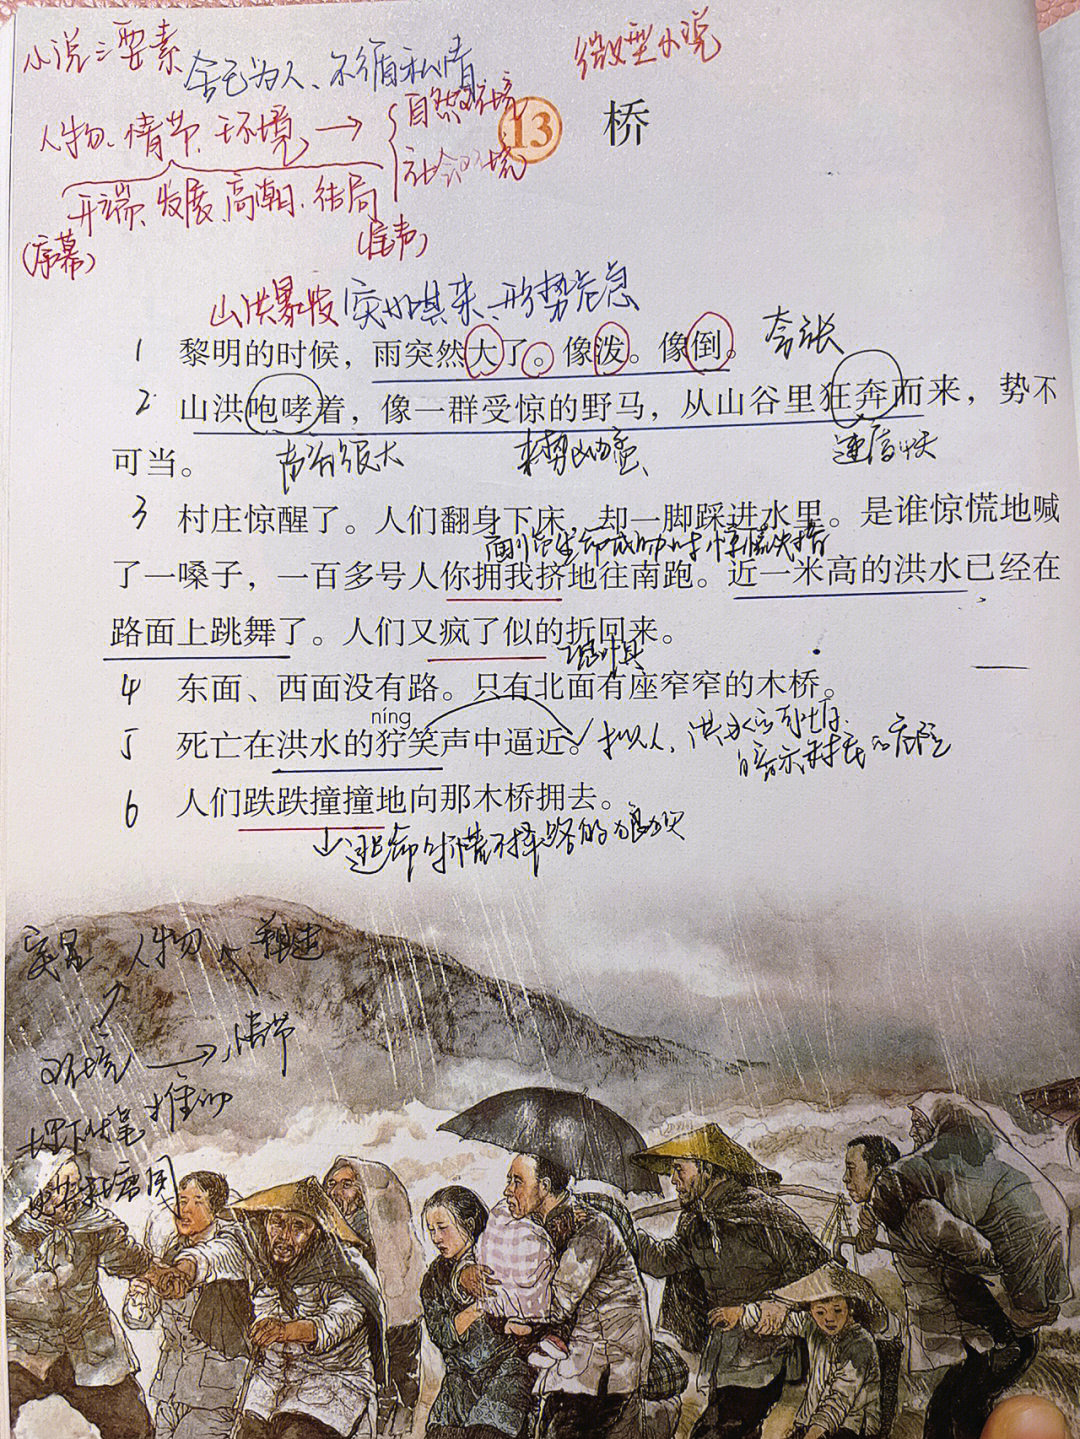 小说三要素
舍己为人、不徇私情
微型小说
人物、情节、环境 → { 自然环境
社会环境
13 桥
开端、发展、高潮、结局
(序幕)
(尾声)
山洪暴发 突如其来、形势危急
1 黎明的时候，雨突然大了。像泼。像倒。
夸张
2 山洪咆哮着，像一群受惊的野马，从山谷里狂奔而来，势不
可当。
声音很大
来势凶猛
速度快
3 村庄惊醒了。人们翻身下床，却一脚踩进水里。是谁惊慌地喊
面对
惊慌失措
了一嗓子，一百多号人你拥我挤地往南跑。近一米高的洪水已经在
路面上跳舞了。人们又疯了似的折回来。
4 东面、西面没有路。只有北面有座窄窄的木桥。
níng
5 死亡在洪水的狞笑声中逼近。
拟人，洪水
暗示
危险
6 人们跌跌撞撞地向那木桥拥去。
慌不择路的
突显 人物
环境 → 情节
推动